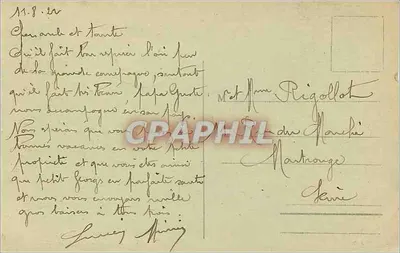 11.8.22
Cher oncle et tante
Qu'il fait bon respirer l'air pur
de la grande campagne, surtout
qu'il fait très beau. Papa
nous accompagne
Nous espérons que vous
bonnes vacances en votre petite
propriété et que vous êtes ainsi
que petit Georges en parfaite santé
et nous vous envoyons mille
gros baisers à tous trois.
Mr et Mme Rigollot
du Marché
Montrouge
Seine
CPARPHIL